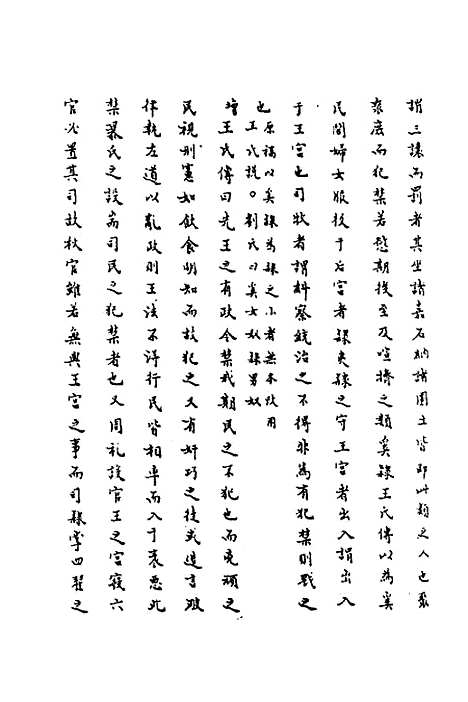 謂三讓而罰者其坐諸嘉石納諸圜土皆即此類之人也聚
衆庶而犯禁若愆期後至及喧擾之類奚隸王氏傳以為奚
民間婦女服役于后宮者隸夷隸之守王宮者出入謂出入
于王宮也司牧者謂糾察統治之不得非為有犯禁則戮之
也原稿以奚為隸之小者無本改用
王氏說○劉氏曰奚女奴隸男奴
增王氏傳曰先王之有政令禁戒期民之不犯也而兇頑之
民視刑憲如飲食明知而故犯之又有奸巧之徒或造言破
律執左道以亂政則王法不得行民皆相率而入于衰惡此
禁暴氏之設而司民之犯禁者也又周禮設官王之宮寢六
官必置其司故秋官雖若無與王宮之事而司隸掌四翟之